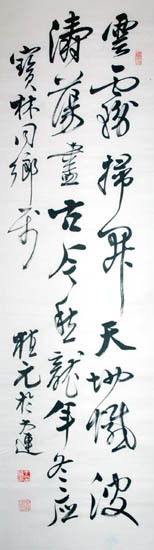 雲霧掃開天地憾波
濤蕩盡古今愁龍年冬应
寶林同鄉
植元於大連